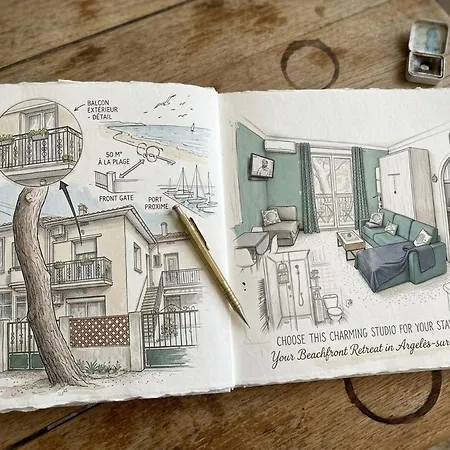 BALCON
EXTÉRIEUR
- DÉTAIL
50 Mᴱ
À LA PLAGE
FRONT GATE
PORT
PROXIME
CHOOSE THIS CHARMING STUDIO FOR YOUR STA
Your Beachfront Retreat in Argelès-sur